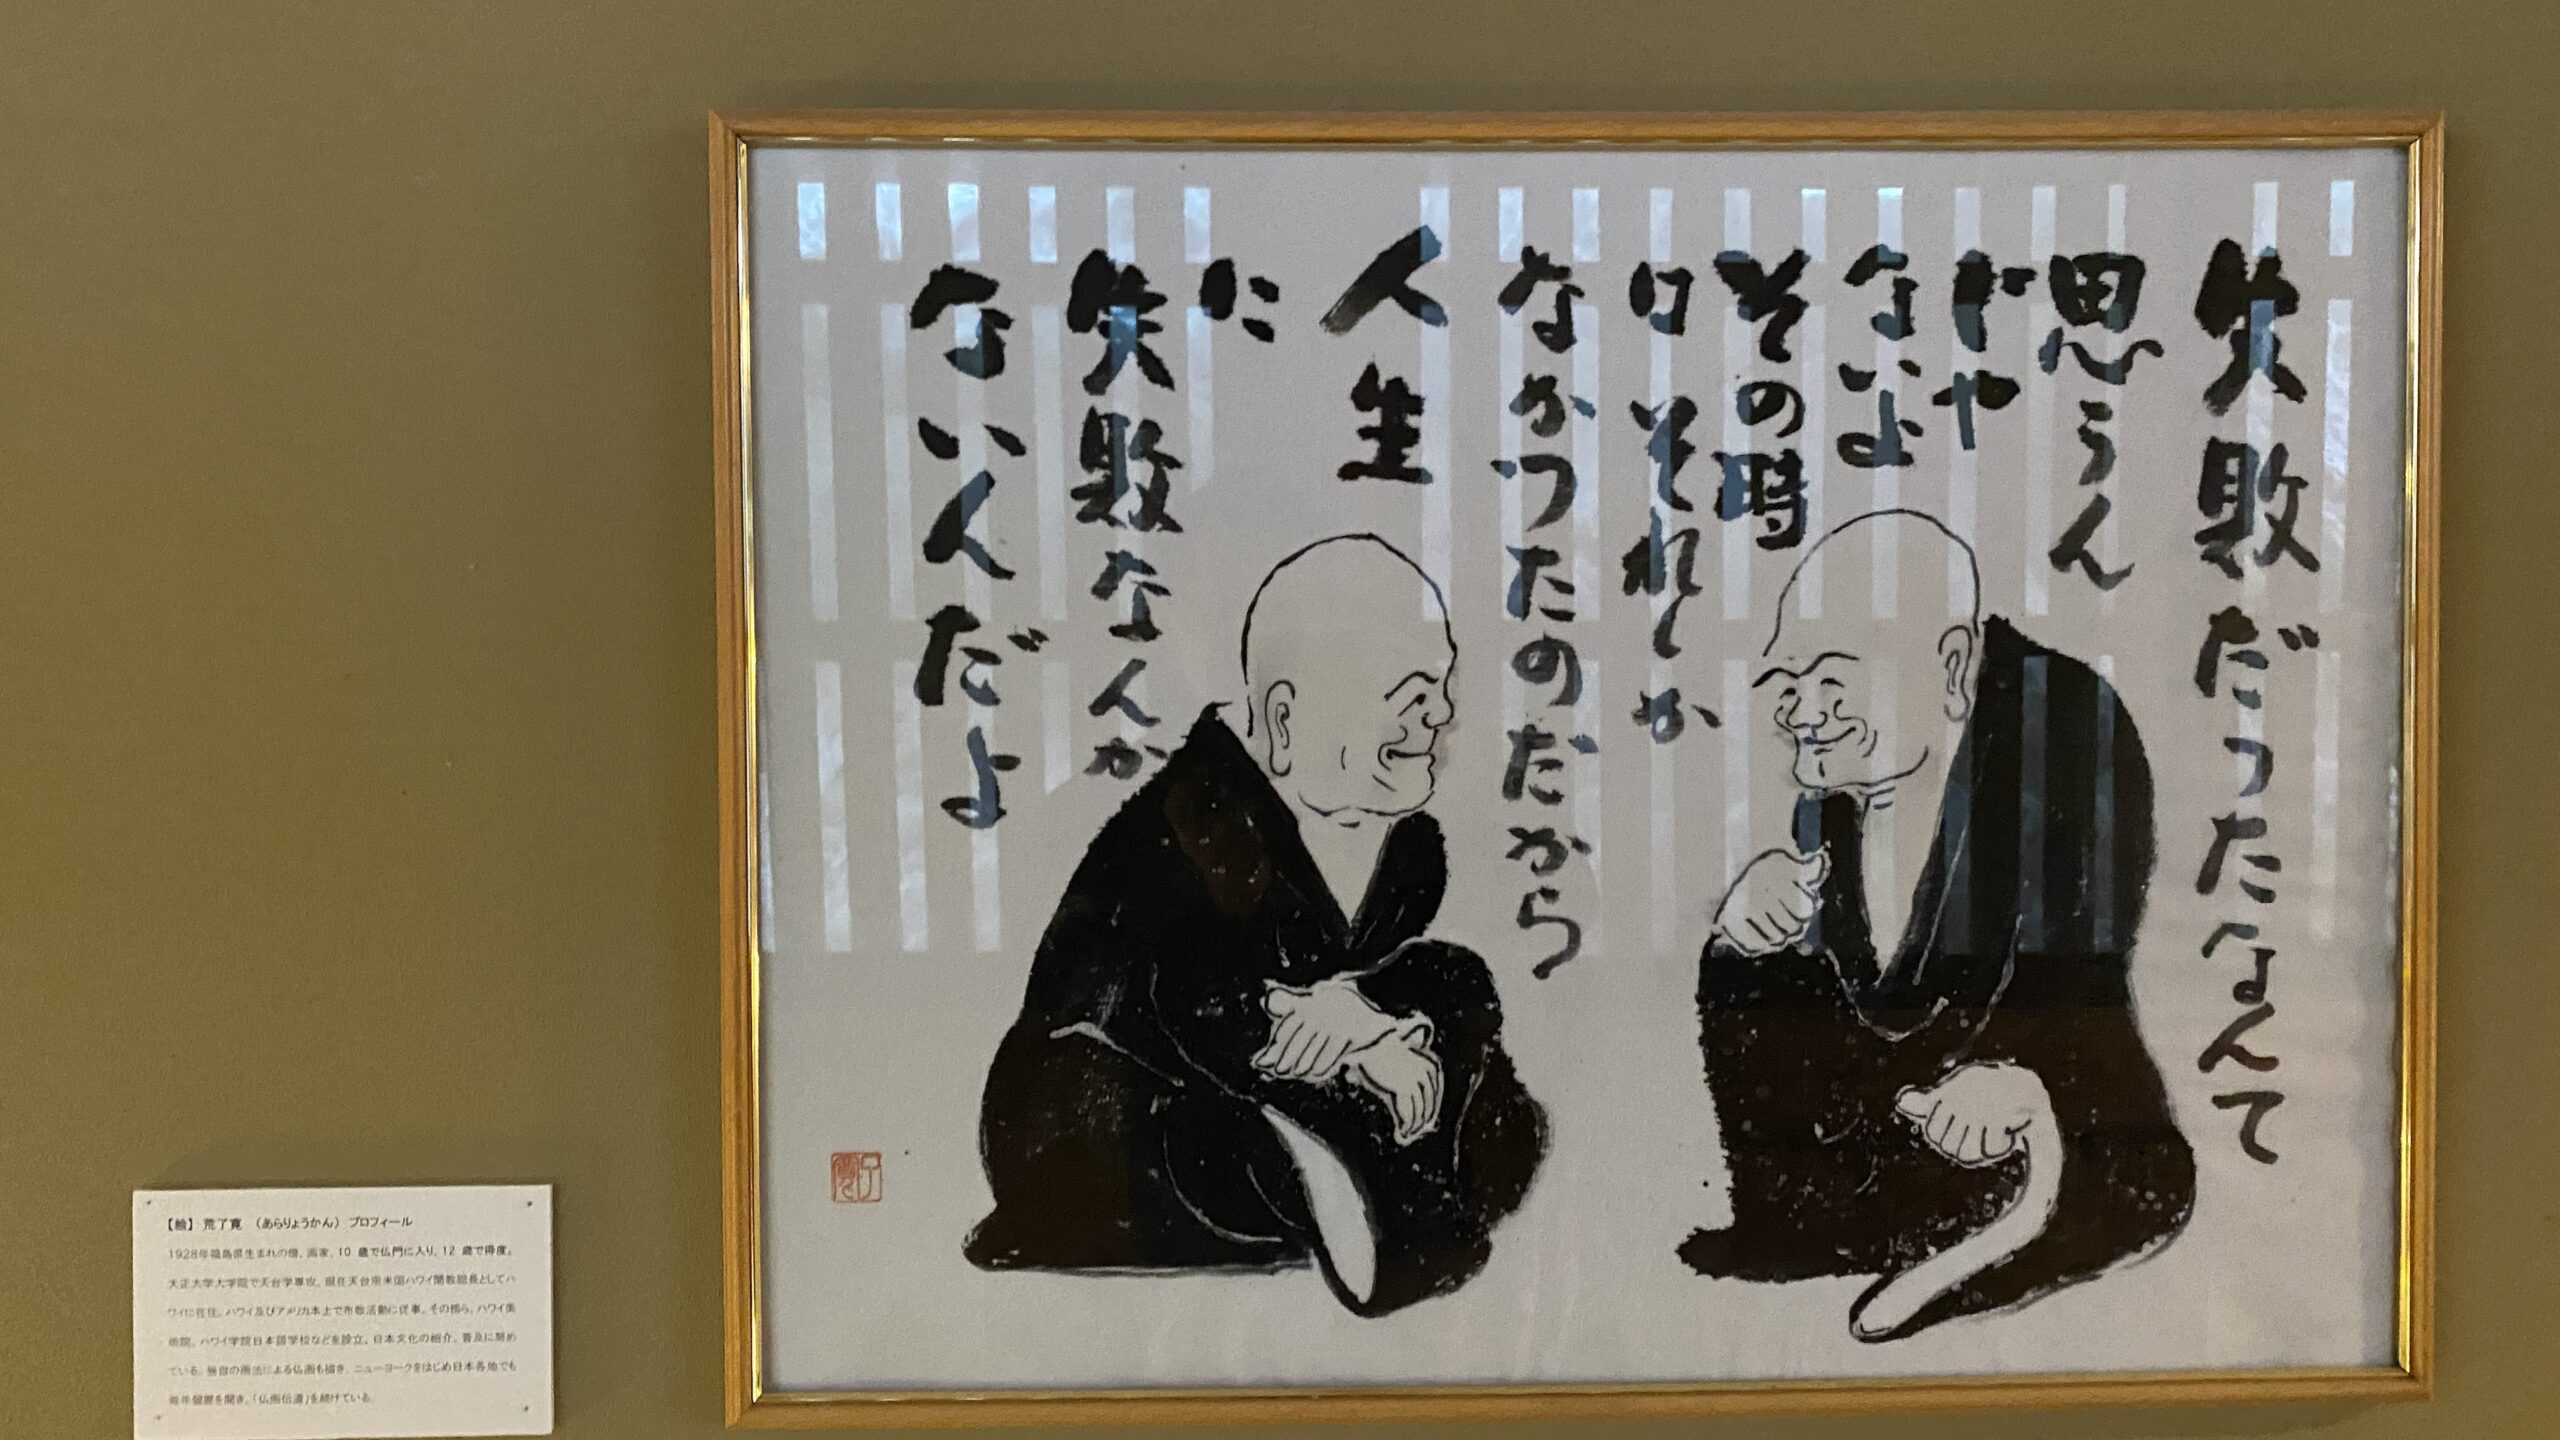 失敗だったなんて
思うん
じゃ
ないよ
その時
はそれしか
なかったのだから
人生
に
失敗なんか
ないんだよ
【絵】 荒了寛 （あらりょうかん） プロフィール
1928年福島県生まれの僧、画家。10 歳で仏門に入り、12 歳で得度。
大正大学大学院で天台学専攻。現在天台宗米国ハワイ開教総長としてハ
ワイに在住。ハワイ及びアメリカ本土で布教活動に従事。その傍ら、ハワイ美
術院、ハワイ学院日本語学校などを設立、日本文化の紹介、普及に努め
ている。独自の画法による仏画も描き、ニューヨークをはじめ日本各地でも
毎年個展を開き、「仏画伝道」を続けている。